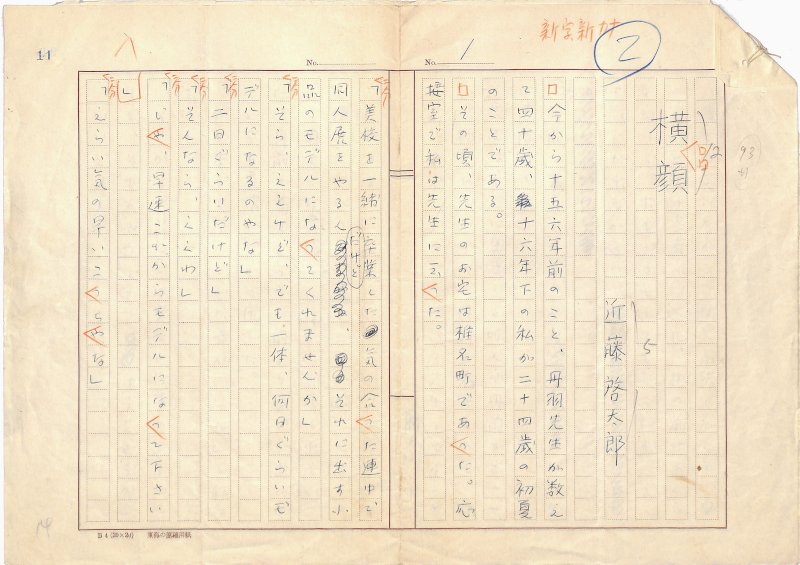 新字新カナ
2
No. 1
横顔
近藤啓太郎
5
今から十五六年前のこと、丹羽先生が数え
て四十歳、十六年下の私が二十四歳の初夏
のことである。
その頃、先生のお宅は椎名町であった。応
接室で私は先生に云った。
11
No.
「美校を一緒に卒業した気の合った連中で
同人展をやるんだけど、それに出す小
品のモデルになってくれませんか」
「そら、ええけど、でも一体、何日ぐらいモ
デルになるのやな」
「二日ぐらいだけど」
「そんなら、ええわ」
「じゃ、早速これからモデルになって下さい
」
「えらい気の早いこっちゃな」
B4 (20×20)